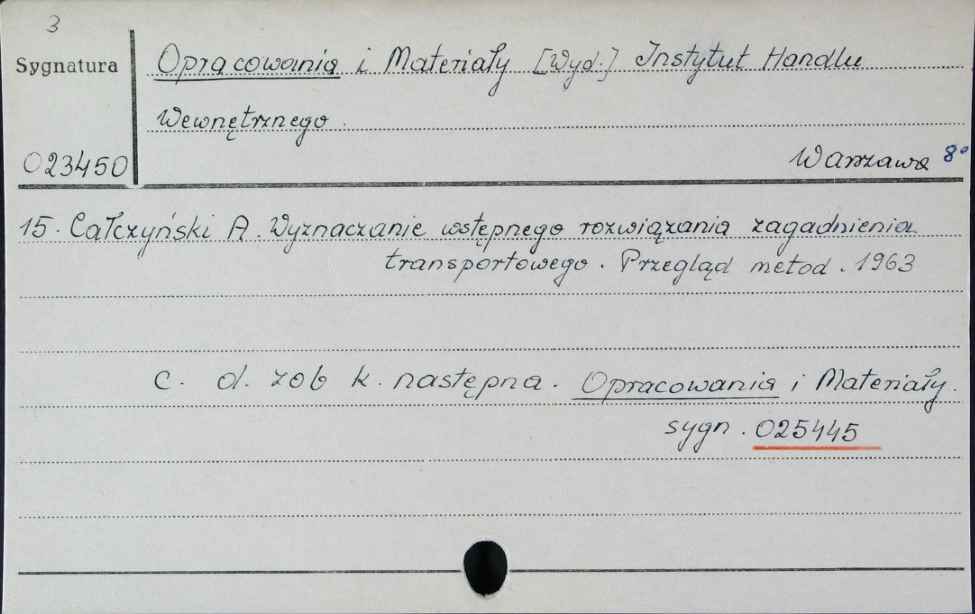 3
Sygnatura
Opracowania i Materiały [Wyd.] Instytut Handlu
Wewnętrznego.
023450
Warszawa 8°
15. Całczyński A. Wyznaczanie wstępnego rozwiązania zagadnienia
transportowego. Przegląd metod. 1963
c. d. zob k. następna. Opracowania i Materiały.
sygn. 025445